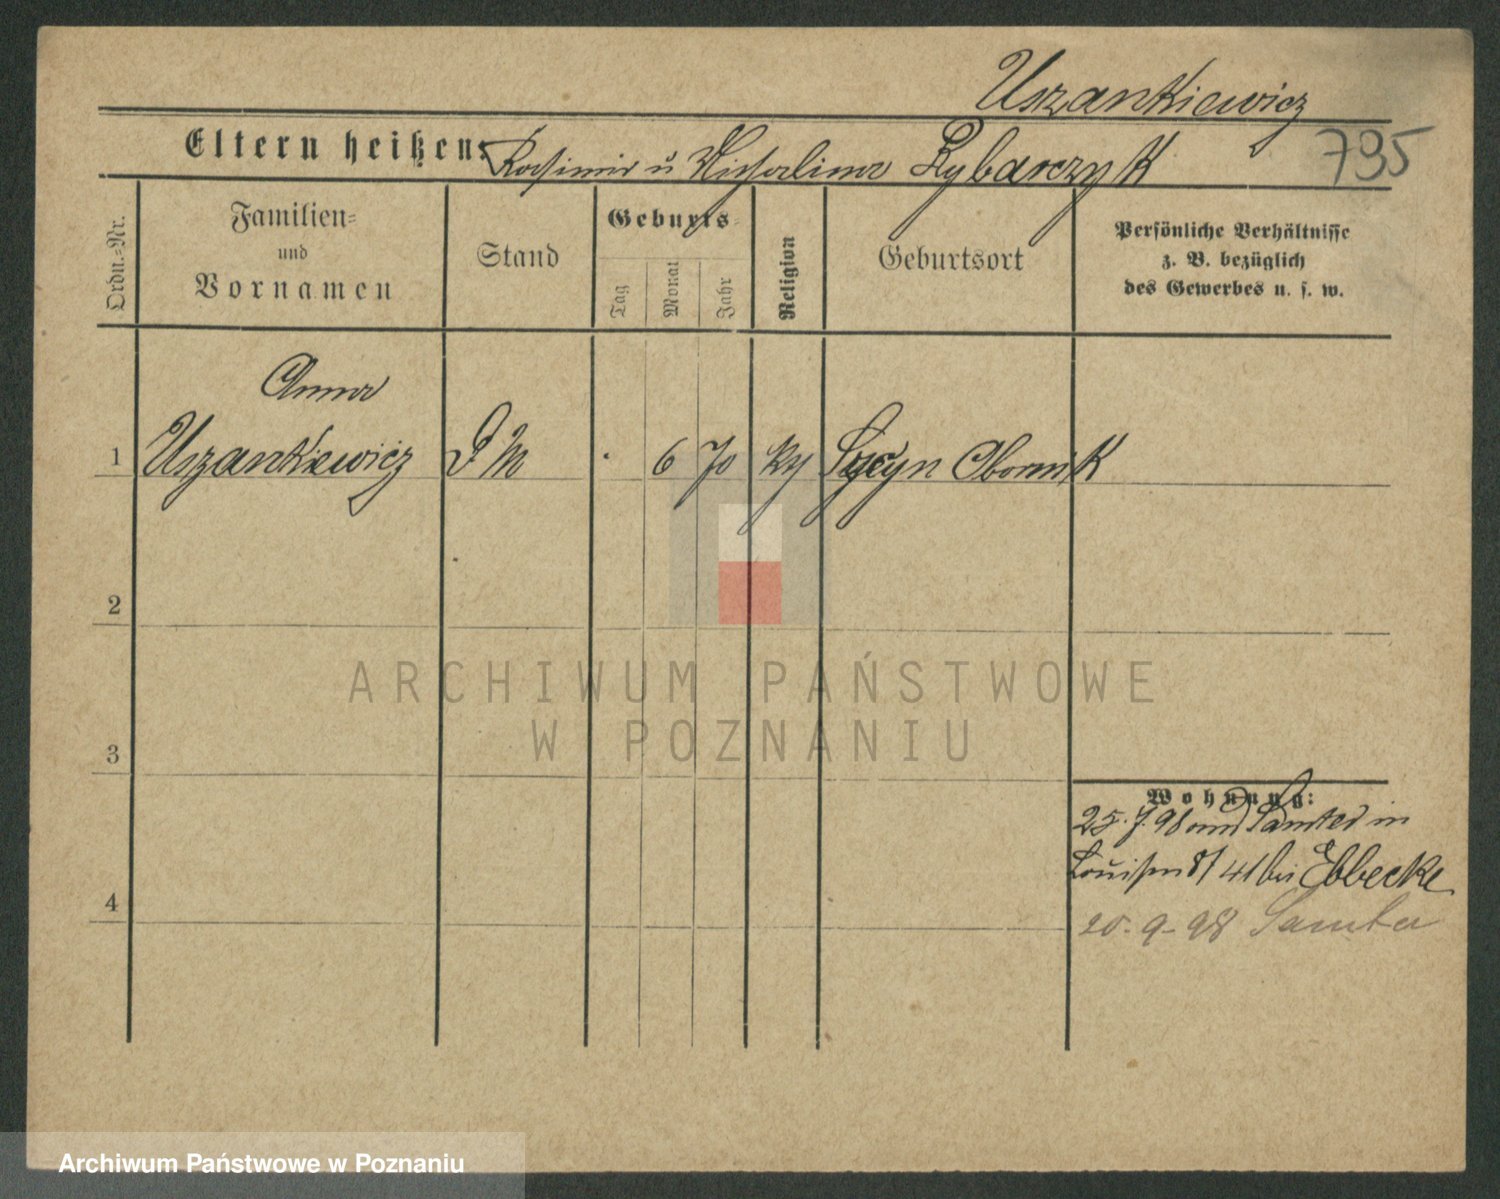 Uszankiewicz
Eltern heißen: Kasimir u Michalina Rybarczyk
795
Ordn.-Nr.
Familien-
und
Vornamen
Stand
Geburts-
Tag
Monat
Jahr
Religion
Geburtsort
Persönliche Verhältnisse
z. B. bezüglich
des Gewerbes u. s. w.
Anna
1 Uszankiewicz D M 6 70 Obornik
2
ARCHIWUM PAŃSTWOWE
W POZNANIU
3
Wohnung:
25. 7. 98 Samter in
Louisen 41 bei Ebbecke
4
20-9-98 Samter
Archiwum Państwowe w Poznaniu